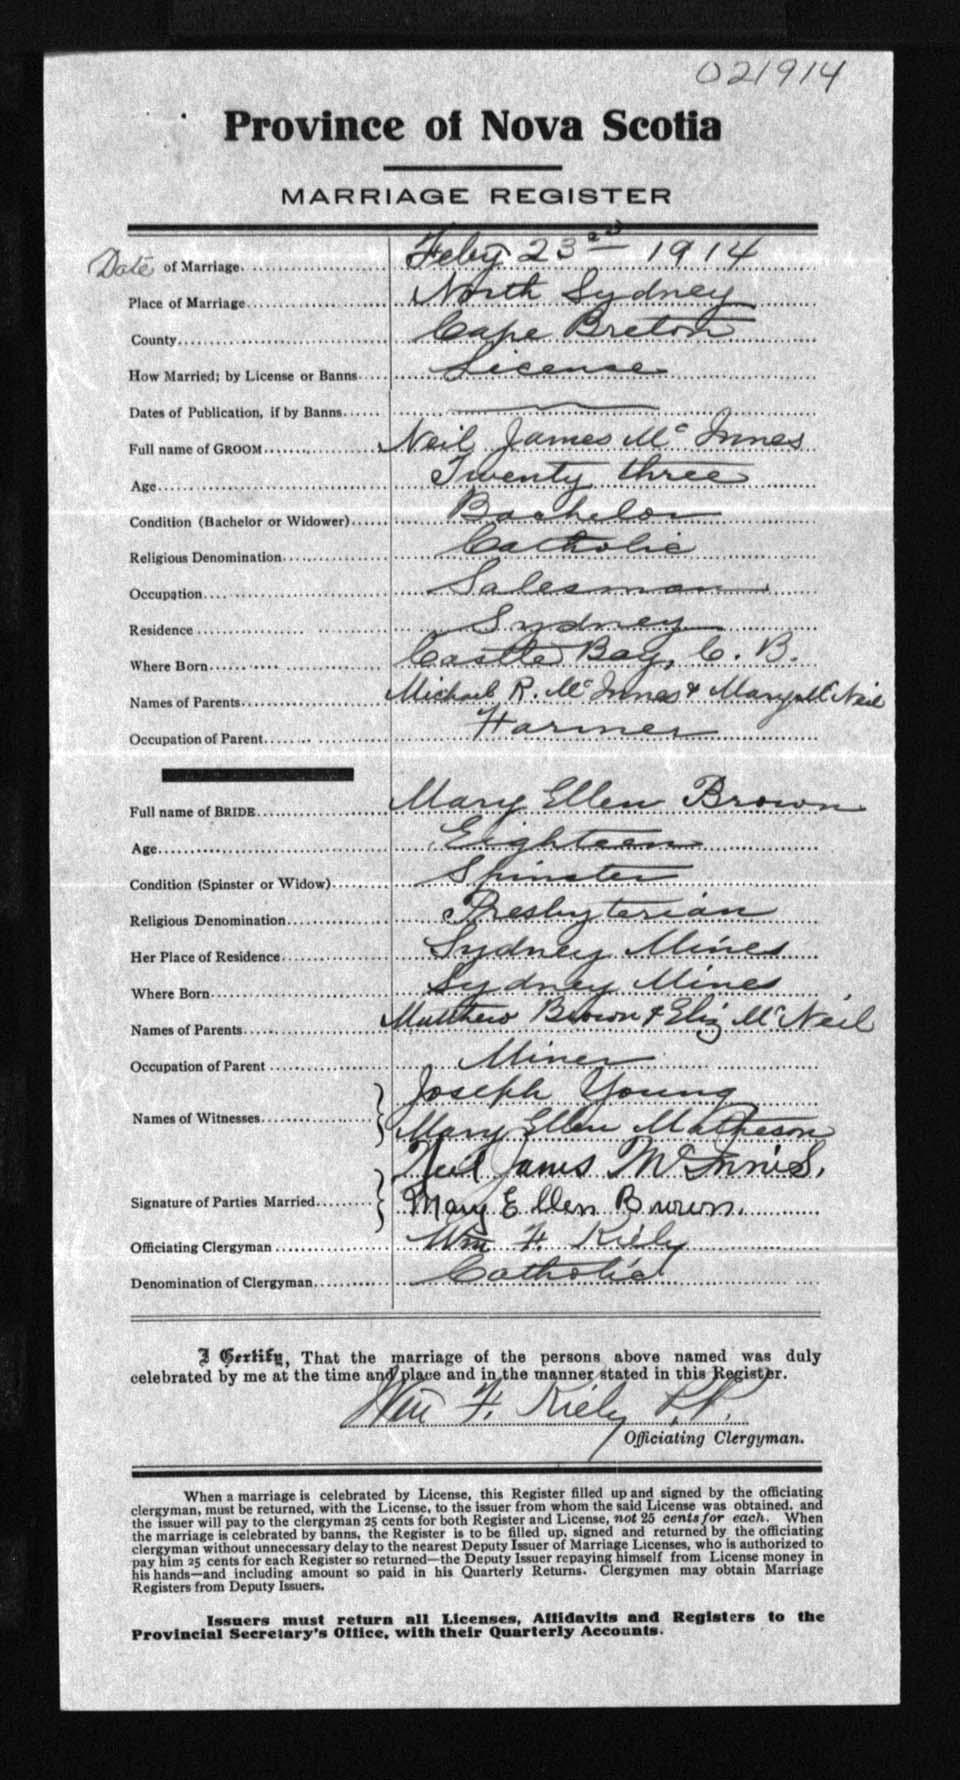 021914
Province of Nova Scotia
MARRIAGE REGISTER
Date of Marriage Feby 23rd 1914
Place of Marriage North Sydney
County Cape Breton
How Married; by License or Banns License
Dates of Publication, if by Banns
Full name of GROOM Neil James McInnes
Age Twenty three
Condition (Bachelor or Widower) Bachelor
Religious Denomination Catholic
Occupation Salesman
Residence Sydney
Where Born Castle Bay, C. B.
Names of Parents Michael R. McInnes & Mary McNeil
Occupation of Parent Farmer
Full name of BRIDE Mary Ellen Brown
Age Eighteen
Condition (Spinster or Widow) Spinster
Religious Denomination Presbyterian
Her Place of Residence Sydney Mines
Where Born Sydney Mines
Names of Parents Matthew Brown & Eliz McNeil
Occupation of Parent Miner
Names of Witnesses Joseph Young
Mary Ellen Matheson
Signature of Parties Married Neil James McInnis.
Mary Ellen Brown.
Officiating Clergyman Wm F. Kiely
Denomination of Clergyman Catholic
I Certify, That the marriage of the persons above named was duly
celebrated by me at the time and place and in the manner stated in this Register.
Wm F. Kiely P.P.
Officiating Clergyman.
When a marriage is celebrated by License, this Register filled up and signed by the officiating
clergyman, must be returned, with the License, to the issuer from whom the said License was obtained, and
the issuer will pay to the clergyman 25 cents for both Register and License, not 25 cents for each. When
the marriage is celebrated by banns, the Register is to be filled up, signed and returned by the officiating
clergyman without unnecessary delay to the nearest Deputy Issuer of Marriage Licenses, who is authorized to
pay him 25 cents for each Register so returned—the Deputy Issuer repaying himself from License money in
his hands—and including amount so paid in his Quarterly Returns. Clergymen may obtain Marriage
Registers from Deputy Issuers.
Issuers must return all Licenses, Affidavits and Registers to the
Provincial Secretary's Office, with their Quarterly Accounts.